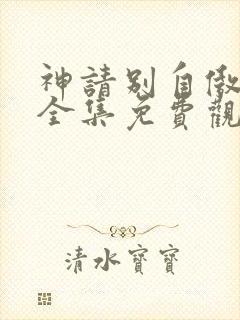 神請別自傲
全集免費觀
清水寶寶